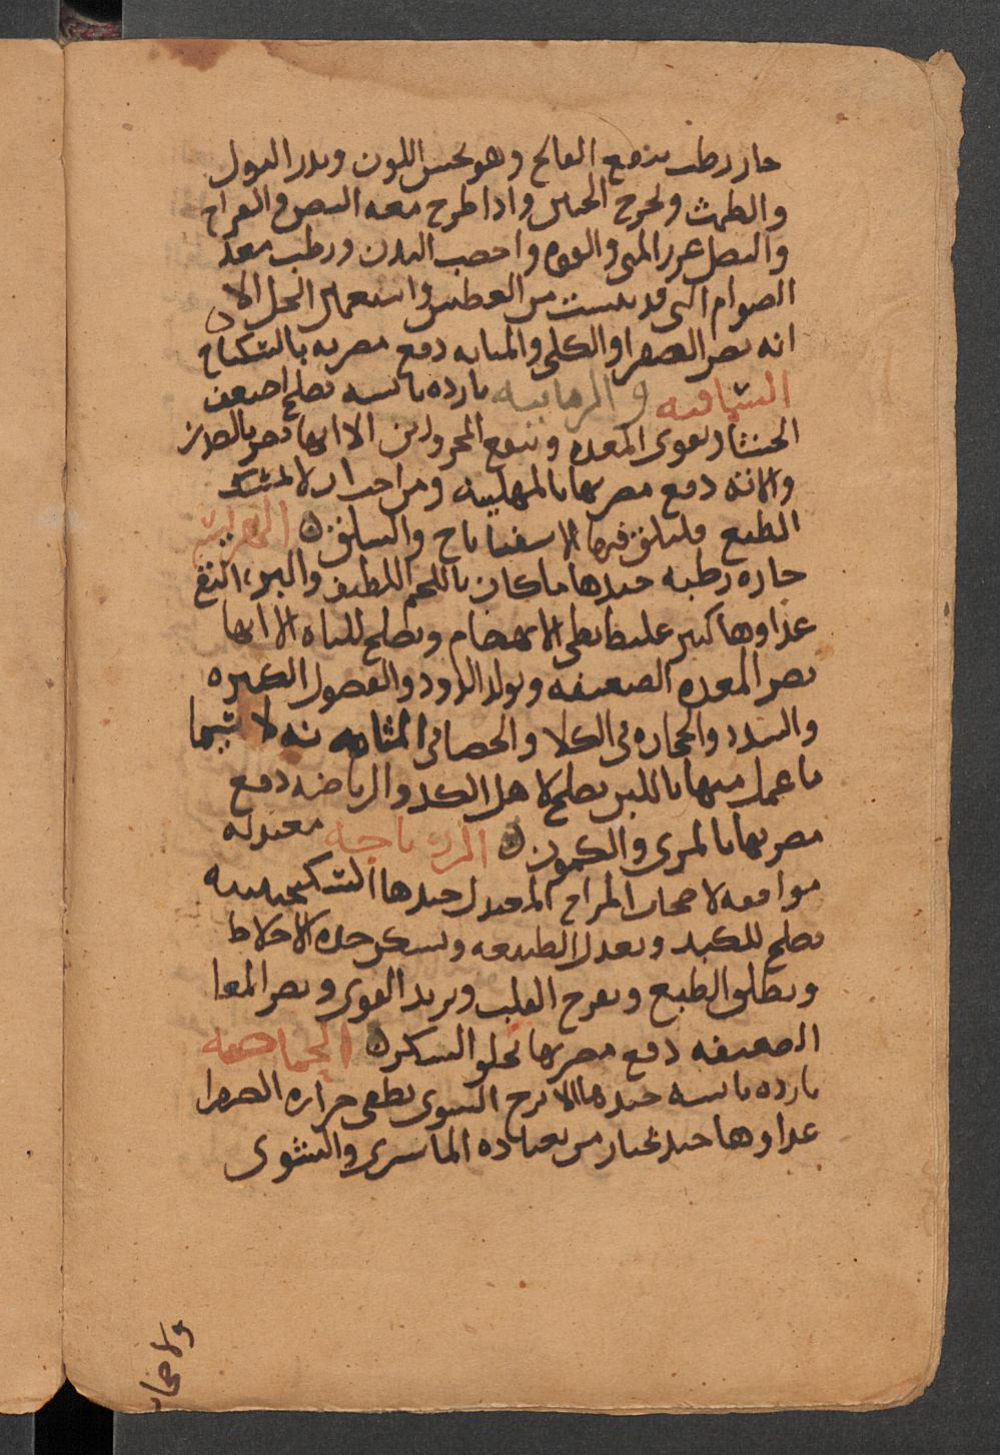 حار رطب ينفع الفالج وهو يحسن اللون ويدر البول
والطمث ويخرج الجنين واذا طرح معه البيض والفراخ
والبصل غزر المنى والقوه واخصب البدن ورطب معد
الصوام التى قد يبست من العطش واستعمال الخل الا
انه يضر الصفرا والكلى والمثانه دفع مضربه بالسكباج
السماقيه والرمانيه بارده يابسه تصلح اضعف
الحشا وتقوى المعده وينفع المحرورين الا انها تضر بالصدر
والاته دفع مضربها بالمهلبيه ومن احب ان لا تمسك
الطبع فليلق فيها الاسفناناخ والسلق ن الهريسه
حاره رطبه جيدها ما كان باللحم اللطيف والبر النقى
غذاوها كثير غليظ بطى الانهضام وتصلح للباه الا انها
تضر المعده الضعيفه وتولد الدود والفضول الكثيره
والسدد والحجاره فى الكلا والحصا فى المثانه لا سيما
ما عمل منها باللبن تصلح لاهل الكد والرياضه دفع
مضربها بالمرى والكمون ن الزيرباجه معتدله
موافقه لاصحاب المزاج المعتدل جيدها السكنجبينيه
تصلح للكبد وتعدل الطبيعه وتسكن حده الاخلاط
وتطلق الطبع وتفرح القلب وتزيد القوى وتضر المعا
الضعيفه دفع مضربها بحلو السكر ن الحماضيه
بارده يابسه جيدها الاترج السوى تطفى حراره الصفرا
غذاوها جيد تختار من بعد الماسرى والتشوى
ولاصحاب